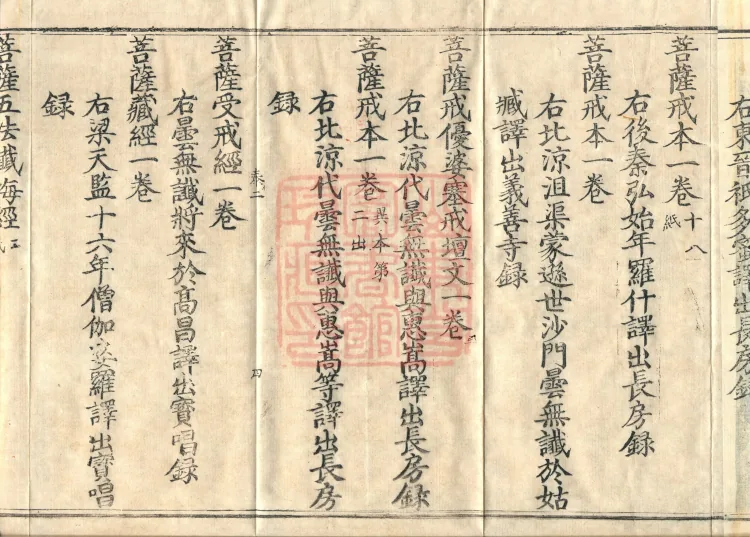 右東晉祇多蜜譯出長房錄
菩薩戒本一卷十八紙
右後秦弘始年羅什譯出長房録
菩薩戒本一卷
右北涼沮渠蒙遜世沙門曇無讖於姑
臧譯出義善寺録
菩薩戒優婆塞戒壇文一卷
右北涼代曇無讖與惠嵩譯出長房録
菩薩戒本一卷異本第二出
右北涼代曇無讖與惠嵩等譯出長房
録
卷二
月
菩薩受戒經一卷
右曇無讖將來於高昌譯出寶唱録
菩薩藏經一卷
右梁天監十六年僧伽婆羅譯出寶唱
録
菩薩五法懺悔經